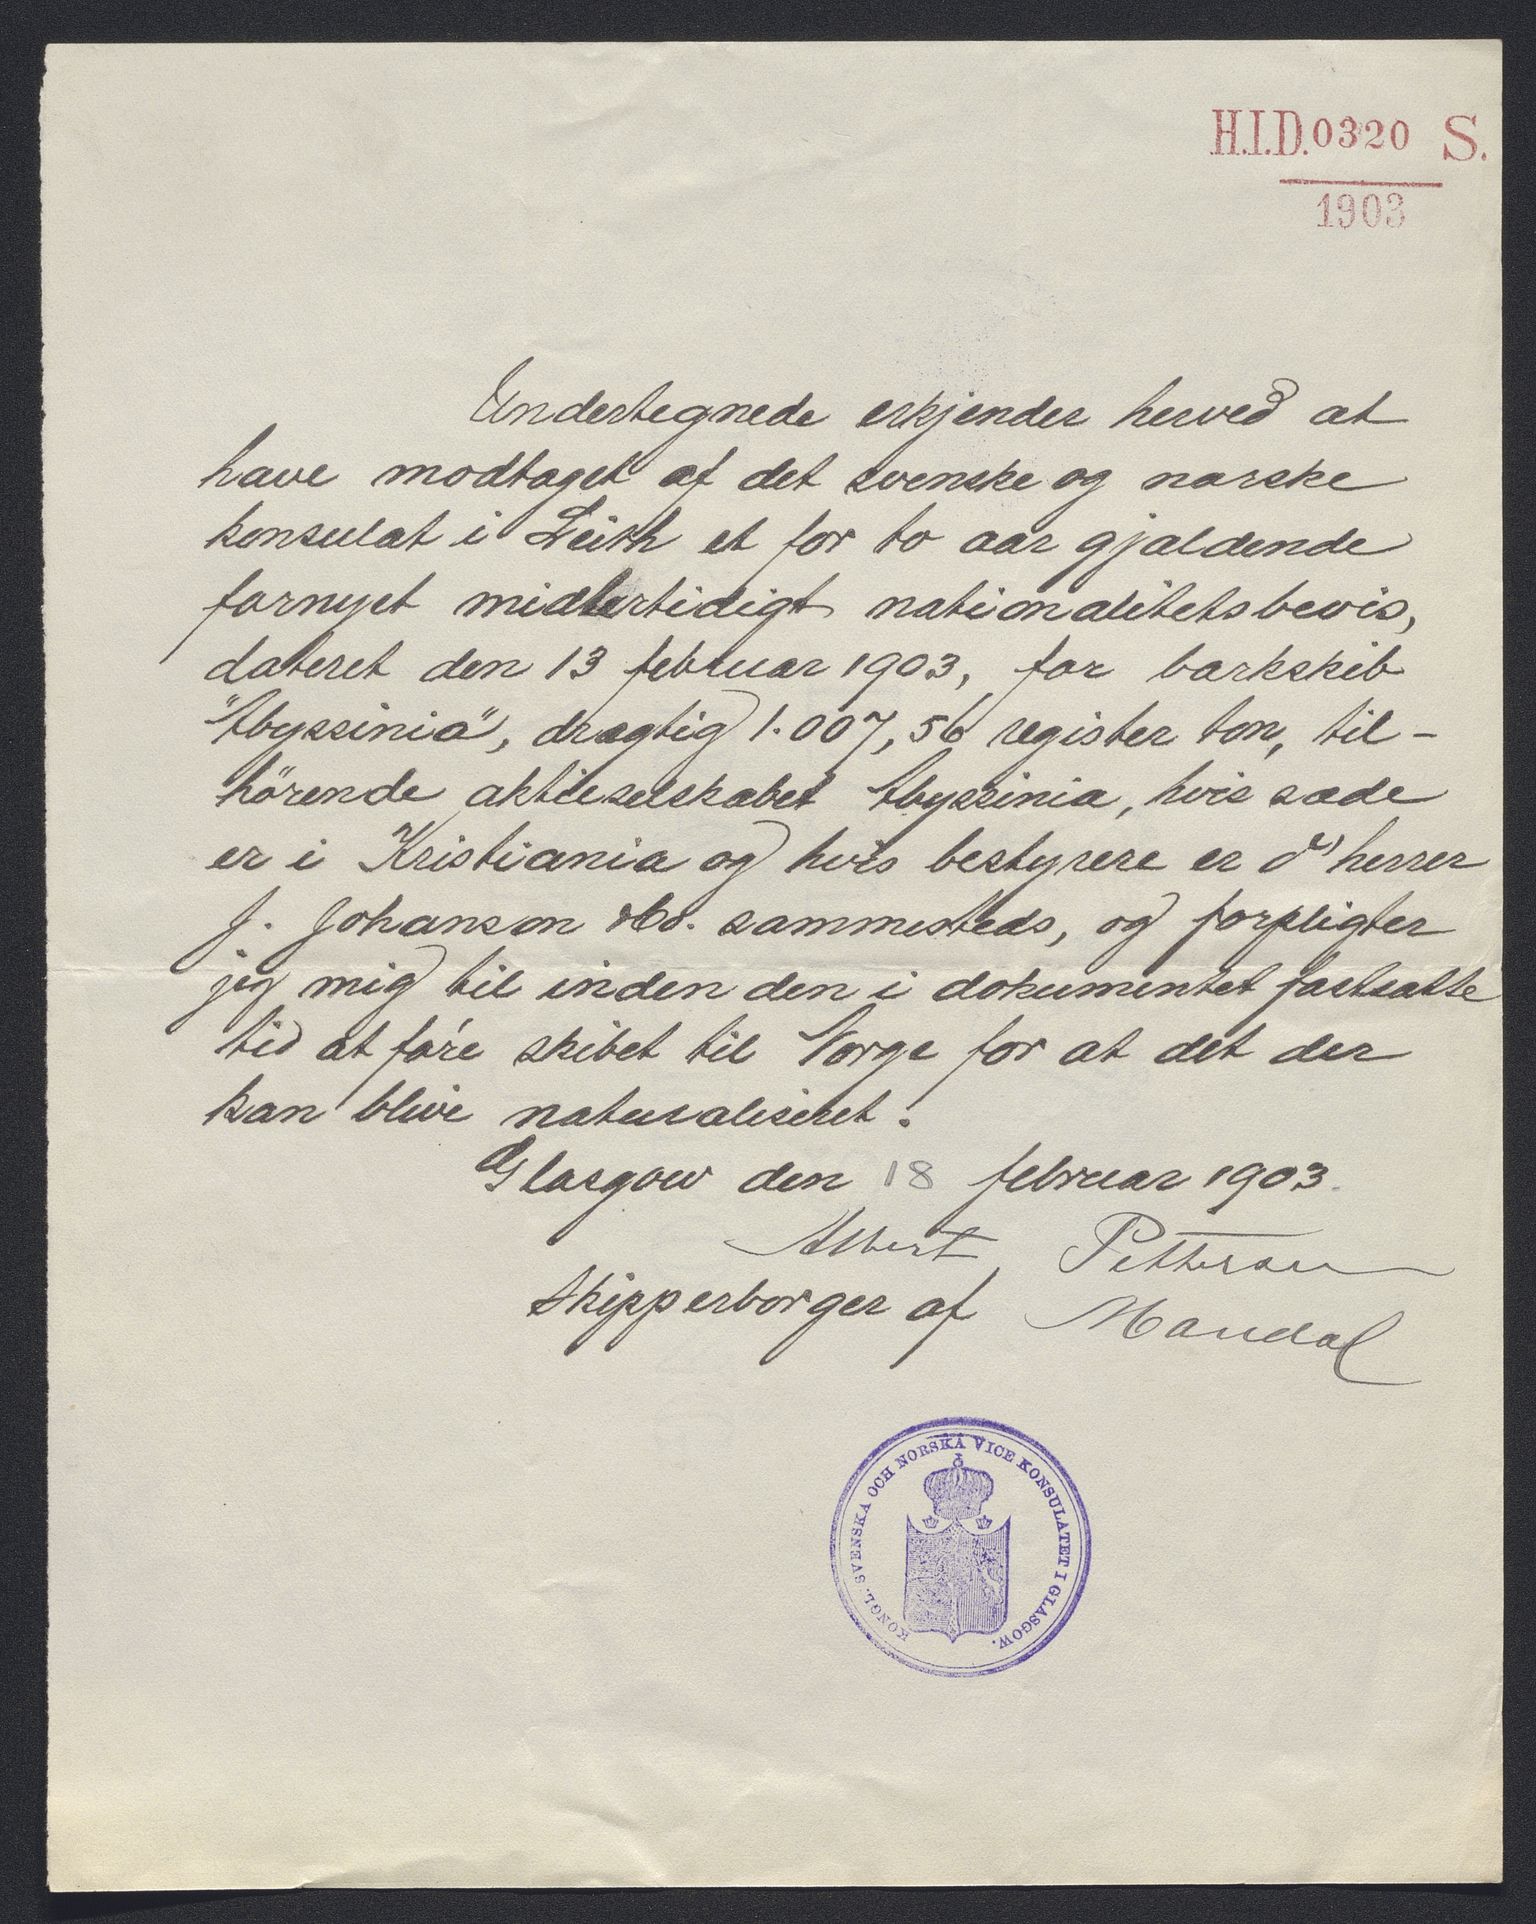 H.I.D. 0320 S.
1903
Undertegnede erkjender herved at
have modtaget af det svenske og norske
konsulat i Leith et for to aar gjældende
fornyet midlertidigt nationalitetsbevis,
dateret den 13 februar 1903, for barkskib
"Abyssinia", drægtig 1.007,56 register ton, til-
hörende aktieselskabet Abyssinia, hvis sæde
er i Kristiania og hvis bestyrere er d'hrr herrer
J. Johanson &Co. sammesteds, og forpligter
jeg mig til inden den i dokumentet fastsatte
tid at føre skibet til Norge for at det der
kan blive naturaliseret.
Glasgow den 18 februar 1903.
Albert Pettersen
Skipperborger af Mandal
KONGL. SVENSKA OCH NORSKA VICE KONSULATET I GLASGOW.